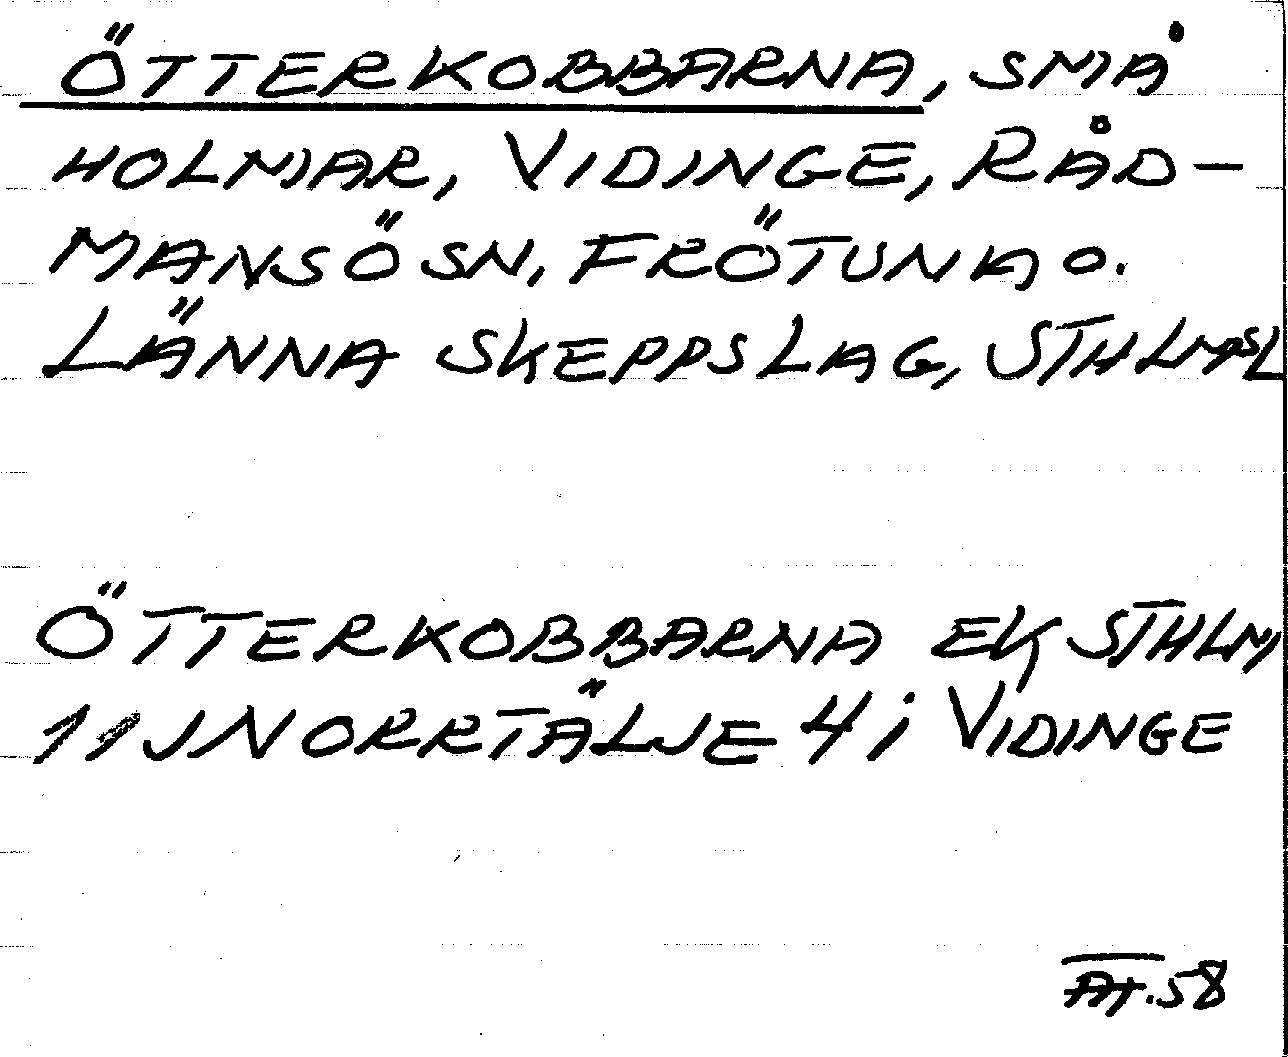 ÖTTERKOBBARNA, SMÅ
HOLMAR, VIDINGE, RÅD-
MANSÖ SN, FRÖTUNA O.
LÄNNA SKEPPSLAG, STHLMSL
ÖTTERKOBBARNA EK STHLM
11 J NORRTÄLJE 4 i VIDINGE
58